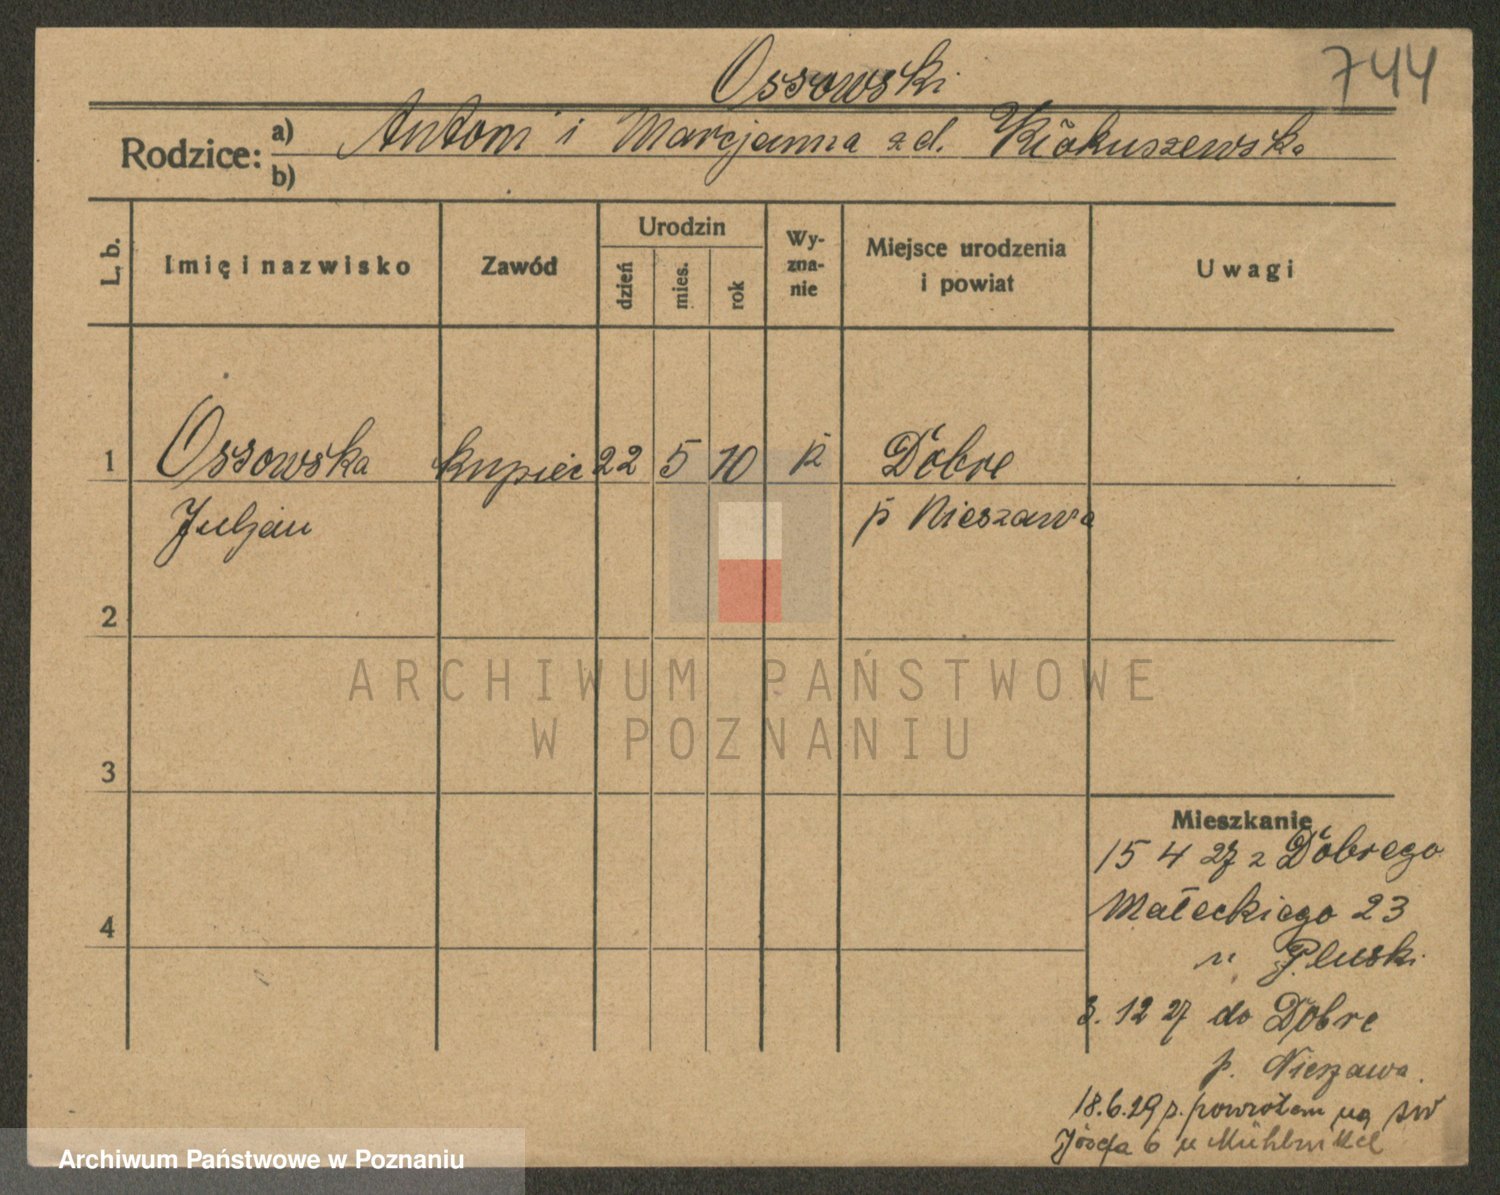 Ossowski
744
Rodzice: a) Antoni i Marcjanna zd. Kiôkuszewska
b)
L. b.
Imię i nazwisko
Zawód
Urodzin
dzień
mies.
rok
Wy-
zna-
nie
Miejsce urodzenia
i powiat
Uwagi
1 Ossowska kupiec 22 5 10 k Dobre
Juljan p Nieszawa
2
3
4
ARCHIWUM PAŃSTWOWE
W POZNANIU
Mieszkanie
15 4 27 z Dobrego
Małeckiego 23
u Pluski
3. 12 27 do Dobre
p. Nieszawa.
18.6.29 z powrotem na św
Józefa 6 u
Archiwum Państwowe w Poznaniu